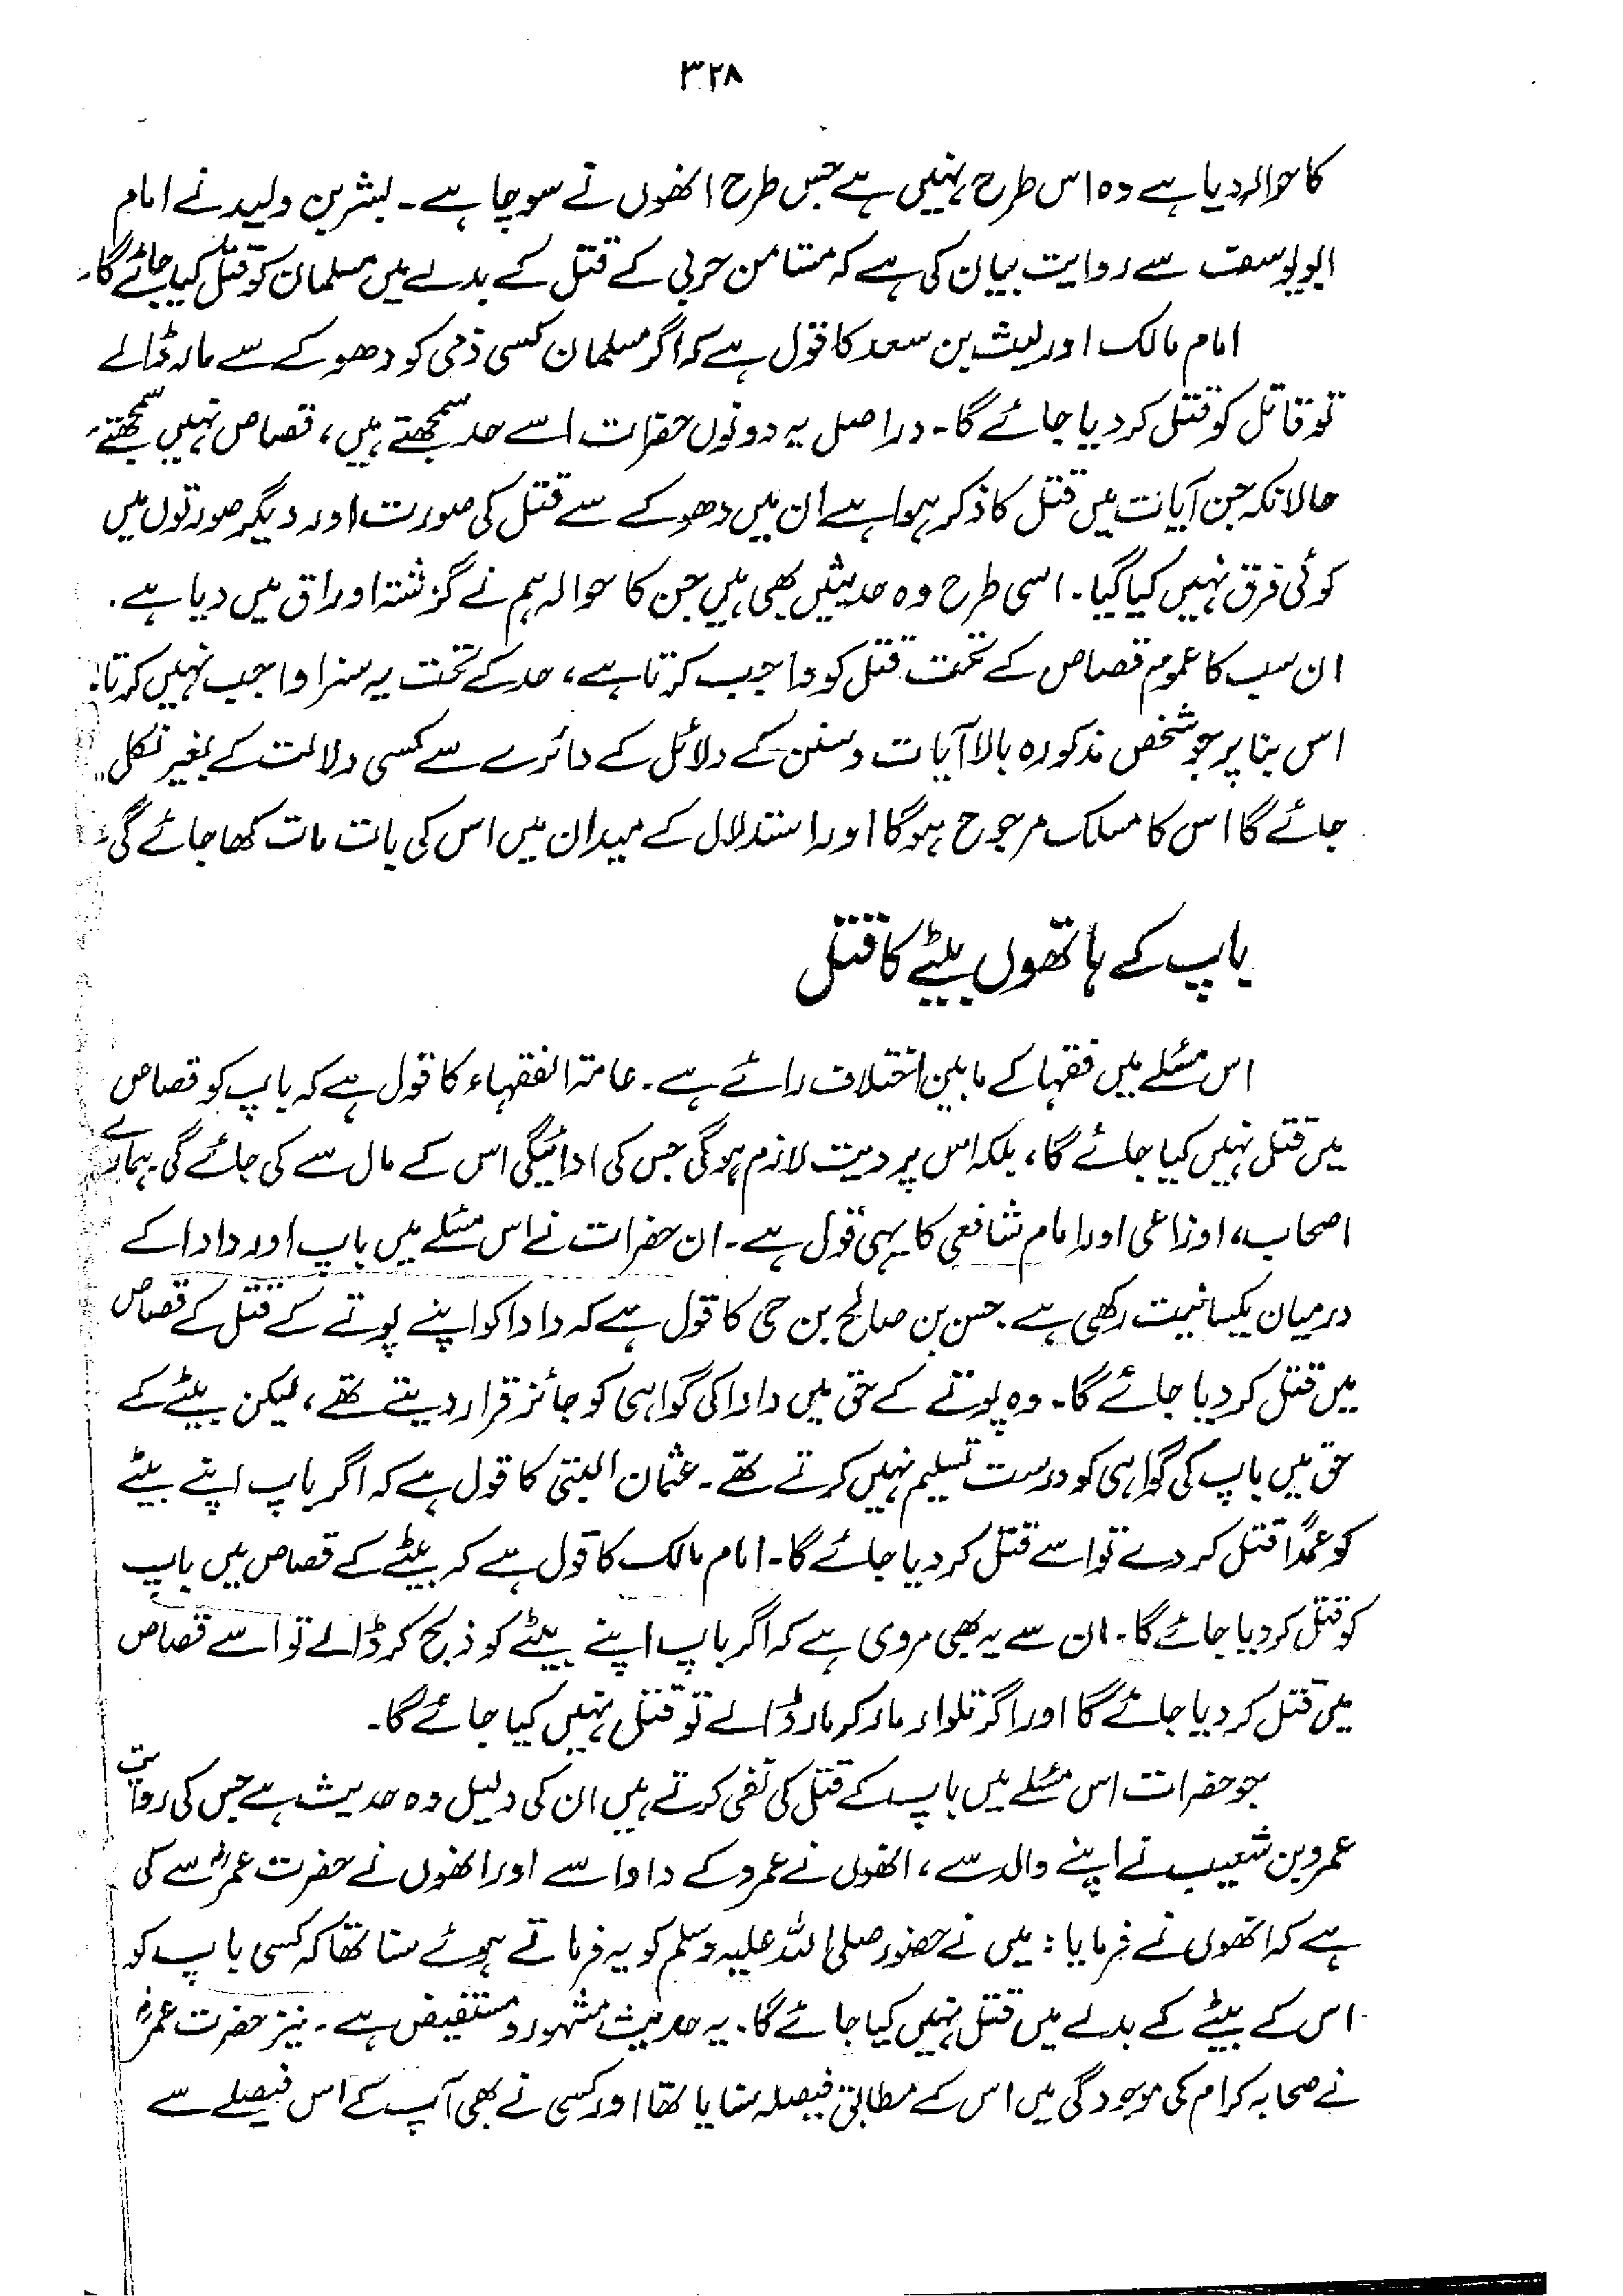 ۳۲۸
کا حوالہ دیا ہے وہ اس طرح نہیں ہے جس طرح انھوں نے سوچا ہے۔ بشر بن ولید نے امام
ابو یوسف سے روایت بیان کی ہے کہ مستامن حربی کے قتل کے بدلے میں مسلمان کو قتل کیا جائے گا۔
امام مالک اور لیث بن سعد کا قول ہے کہ اگر مسلمان کسی ذمی کو دھوکے سے مار ڈالے
تو قاتل کو قتل کر دیا جائے گا۔ دراصل یہ دونوں حضرات اسے حد سمجھتے ہیں، قصاص نہیں سمجھتے،
حالانکہ جن آیات میں قتل کا ذکر ہوا ہے ان میں دھوکے سے قتل کی صورت اور دیگر صورتوں میں
کوئی فرق نہیں کیا گیا۔ اسی طرح وہ حدیثیں بھی ہیں جن کا حوالہ ہم نے گزشتہ اوراق میں دیا ہے۔
ان سب کا عموم قصاص کے تحت قتل کو واجب کرتا ہے، حد کے تحت یہ سزا واجب نہیں کرتا۔
اس بنا پر جو شخص مذکورہ بالا آیات و سنن کے دلائل کے دائرے سے کسی دلالت کے بغیر نکل
جائے گا اس کا مسلک مرجوح ہوگا اور استدلال کے میدان میں اس کی بات مات کھا جائے گی۔
باپ کے ہاتھوں بیٹے کا قتل
اس مسئلے میں فقہا کے مابین اختلاف رائے ہے۔ عامۃ الفقہاء کا قول ہے کہ باپ کو قصاص
میں قتل نہیں کیا جائے گا، بلکہ اس پر دیت لازم ہوگی جس کی ادائیگی اس کے مال سے کی جائے گی۔ ہمارے
اصحاب، اوزاعی اور امام شافعی کا یہی قول ہے۔ ان حضرات نے اس مسئلے میں باپ اور دادا کے
درمیان یکسانیت رکھی ہے۔ حسن بن صالح بن حی کا قول ہے کہ دادا کو اپنے پوتے کے قتل کے قصاص
میں قتل کر دیا جائے گا۔ وہ پوتے کے حق میں دادا کی گواہی کو جائز قرار دیتے تھے، لیکن بیٹے کے
حق میں باپ کی گواہی کو درست تسلیم نہیں کرتے تھے۔ عثمان البتی کا قول ہے کہ اگر باپ اپنے بیٹے
کو عمداً قتل کر دے تو اسے قتل کر دیا جائے گا۔ امام مالک کا قول ہے کہ بیٹے کے قصاص میں باپ
کو قتل کر دیا جائے گا۔ ان سے یہ بھی مروی ہے کہ اگر باپ اپنے بیٹے کو ذبح کر ڈالے تو اسے قصاص
میں قتل کر دیا جائے گا اور اگر تلوار مار کر مار ڈالے تو قتل نہیں کیا جائے گا۔
جو حضرات اس مسئلے میں باپ کے قتل کی نفی کرتے ہیں ان کی دلیل وہ حدیث ہے جس کی روایت
عمرو بن شعیب نے اپنے والد سے، انھوں نے عمرو کے دادا سے اور انھوں نے حضرت عمرؓ سے کی
ہے کہ انھوں نے فرمایا: میں نے حضور صلی اللہ علیہ وسلم کو یہ فرماتے ہوئے سنا تھا کہ کسی باپ کو
اس کے بیٹے کے بدلے میں قتل نہیں کیا جائے گا۔ یہ حدیث مشہور و مستفیض ہے۔ نیز حضرت عمرؓ
نے صحابہ کرام کی موجودگی میں اس کے مطابق فیصلہ سنایا تھا اور کسی نے بھی آپ کے اس فیصلے سے